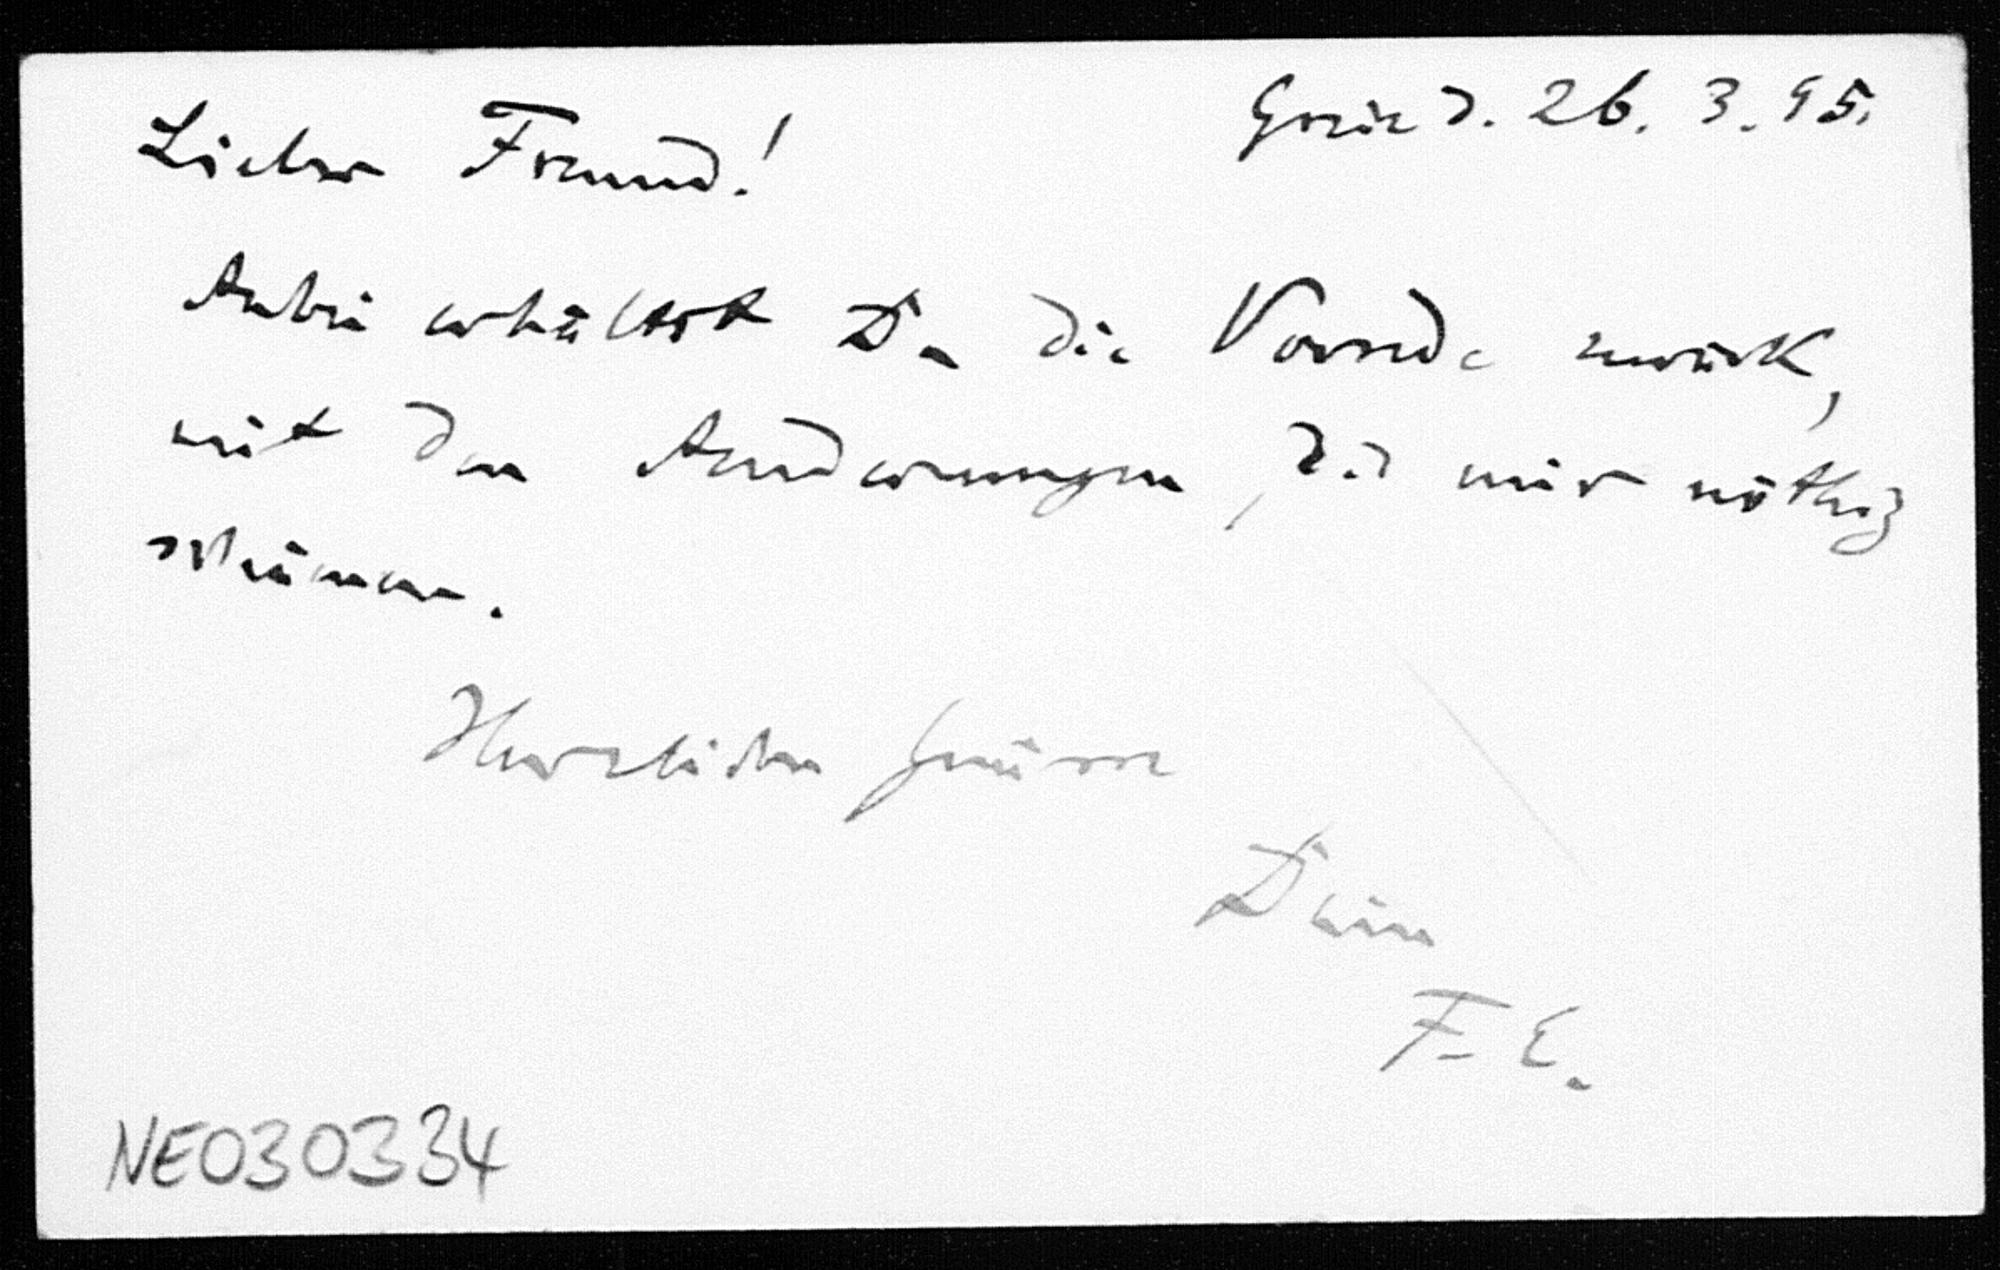 Lieber Freund!
Graz d. 26. 3. 95.
Anbei erhältst Du die Vorrede zurück,
mit den Aenderungen, die mir nöthig
schienen.
Herzlichen Grüsse
Dein
F. E.
NE030334